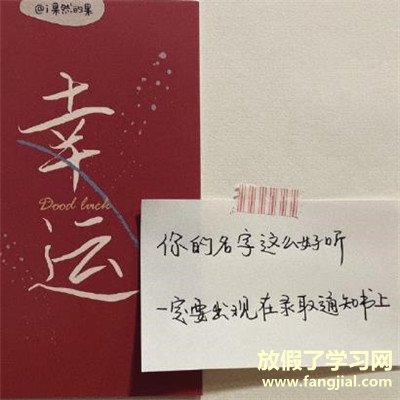 @i果然的果
幸运
Dood luck
你的名字这么好听
一定要出现在录取通知书上
放假了学习网
www.fangjial.com